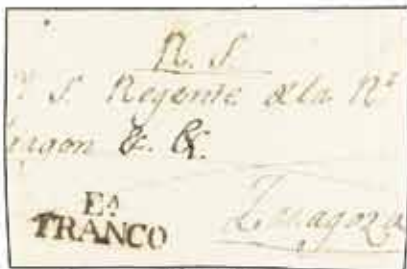 R. S.
S. Regente de la Rˡ
ragon &. &.
Eᴬ
FRANCO
Zaragoza